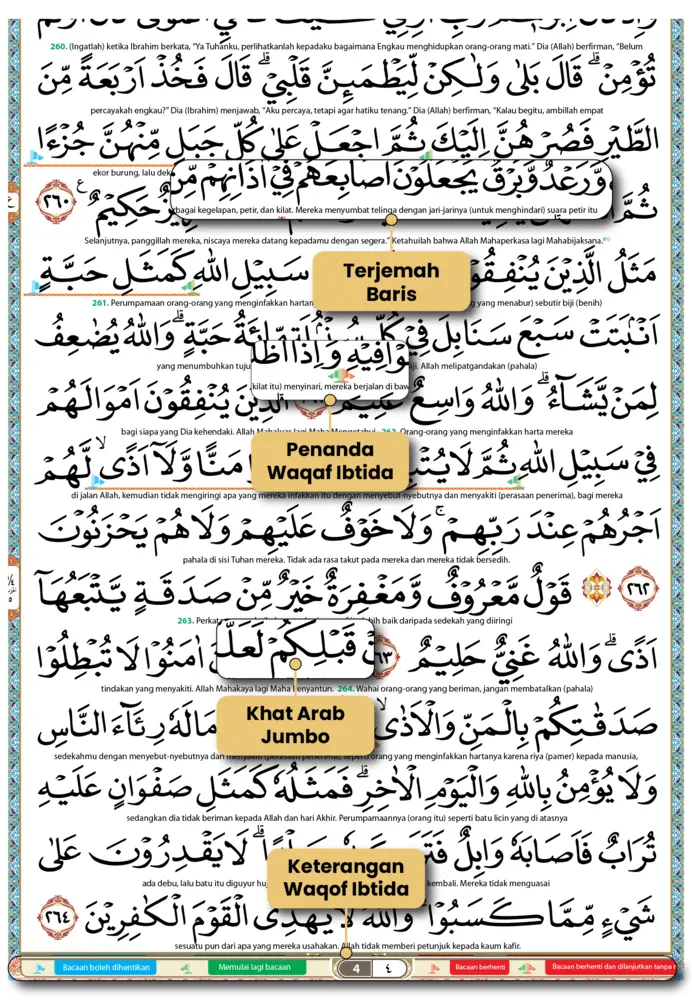 260. (Ingatlah) ketika Ibrahim berkata, “Ya Tuhanku, perlihatkanlah kepadaku bagaimana Engkau menghidupkan orang-orang mati.” Dia (Allah) berfirman, “Belum
تُؤْمِنْ ۗ قَالَ بَلٰى وَلٰكِنْ لِّيَطْمَىِٕنَّ قَلْبِيْ ۗ قَالَ فَخُذْ اَرْبَعَةً مِّنَ
percayakah engkau?” Dia (Ibrahim) menjawab, “Aku percaya, tetapi agar hatiku tenang.” Dia (Allah) berfirman, “Kalau begitu, ambillah empat
الطَّيْرِ فَصُرْهُنَّ اِلَيْكَ ثُمَّ اجْعَلْ عَلٰى كُلِّ جَبَلٍ مِّنْهُنَّ جُزْءًا
ekor burung, lalu
وَّرَعْدٌ وَّبَرْقٌ يَجْعَلُوْنَ اَصَابِعَهُمْ فِيْٓ اٰذَانِهِمْ مِّنَ
bagai kegelapan, petir, dan kilat. Mereka menyumbat telinga dengan jari-jarinya (untuk menghindari) suara petir itu
ثُمَّ
حَكِيْمٌ ٢٦٠
Selanjutnya, panggillah mereka, niscaya mereka datang kepadamu dengan segera.” Ketahuilah bahwa Allah Mahaperkasa lagi Mahabijaksana.
Terjemah
Baris
مَثَلُ الَّذِيْنَ سَبِيْلِ اللّٰهِ كَمَثَلِ حَبَّةٍ
261. Perumpamaan orang-orang yang menginfakkan yang menabur) sebutir biji (benih)
اَنْۢبَتَتْ سَبْعَ سَنَابِلَ فِيْ كُلِّ حَبَّةٍ ۗ وَاللّٰهُ يُضٰعِفُ
yang menumbuhkan Allah melipatgandakan (pahala)
وْا فِيْهِ وَاِذَآ اَظْلَ
kilat itu) menyinari, mereka berjalan di
لِمَنْ يَّشَاۤءُ ۗ وَاللّٰهُ وَاسِعٌ عَلِيْمٌ اَلَّذِيْنَ يُنْفِقُوْنَ اَمْوَالَهُمْ
bagi siapa yang Dia kehendaki. Allah Mahaluas lagi Maha Mengetahui. 262. Orang-orang yang menginfakkan harta mereka
Penanda
Waqaf Ibtida
فِيْ سَبِيْلِ اللّٰهِ ثُمَّ لَا مَنًّا وَّلَآ اَذًى ۙ لَّهُمْ
di jalan Allah, kemudian tidak mengiringi apa yang mereka infakkan itu dengan menyebut-nyebutnya dan menyakiti (perasaan penerima), bagi mereka
اَجْرُهُمْ عِنْدَ رَبِّهِمْ ۚ وَلَا خَوْفٌ عَلَيْهِمْ وَلَا هُمْ يَحْزَنُوْنَ
pahala di sisi Tuhan mereka. Tidak ada rasa takut pada mereka dan mereka tidak bersedih.
٢٦٢ قَوْلٌ مَّعْرُوْفٌ وَّمَغْفِرَةٌ خَيْرٌ مِّنْ صَدَقَةٍ يَّتْبَعُهَآ
263. baik daripada sedekah yang diiringi
اَذًى ۗ وَاللّٰهُ غَنِيٌّ حَلِيْمٌ اٰمَنُوْا لَا تُبْطِلُوْا
قَبْلِكُمْ لَعَلَّ
tindakan yang menyakiti. Allah Mahakaya lagi Maha Penyantun. 264. Wahai orang-orang yang beriman, jangan membatalkan (pahala)
Khat Arab
Jumbo
صَدَقٰتِكُمْ بِالْمَنِّ وَالْاَذٰى ۙ مَالَهٗ رِئَاۤءَ النَّاسِ
sedekahmu dengan menyebut-nyebutnya dan menyakiti (perasaan penerima), seperti orang yang menginfakkan hartanya karena riya (pamer) kepada manusia,
وَلَا يُؤْمِنُ بِاللّٰهِ وَالْيَوْمِ الْاٰخِرِ ۗ فَمَثَلُهٗ كَمَثَلِ صَفْوَانٍ عَلَيْهِ
sedangkan dia tidak beriman kepada Allah dan hari Akhir. Perumpamaannya (orang itu) seperti batu licin yang di atasnya
تُرَابٌ فَاَصَابَهٗ وَابِلٌ لَا يَقْدِرُوْنَ عَلٰى
ada debu, lalu batu itu diguyur kembali. Mereka tidak menguasai
Keterangan
Waqof Ibtida
شَيْءٍ مِّمَّا كَسَبُوْا ۗ وَاللّٰهُ لَا يَهْدِى الْقَوْمَ الْكٰفِرِيْنَ ٢٦٤
sesuatu pun dari apa yang mereka usahakan. Allah tidak memberi petunjuk kepada kaum kafir.
Bacaan boleh dihentikan Memulai lagi bacaan 4 ٤ Bacaan berhenti Bacaan berhenti dan dilanjutkan tanpa